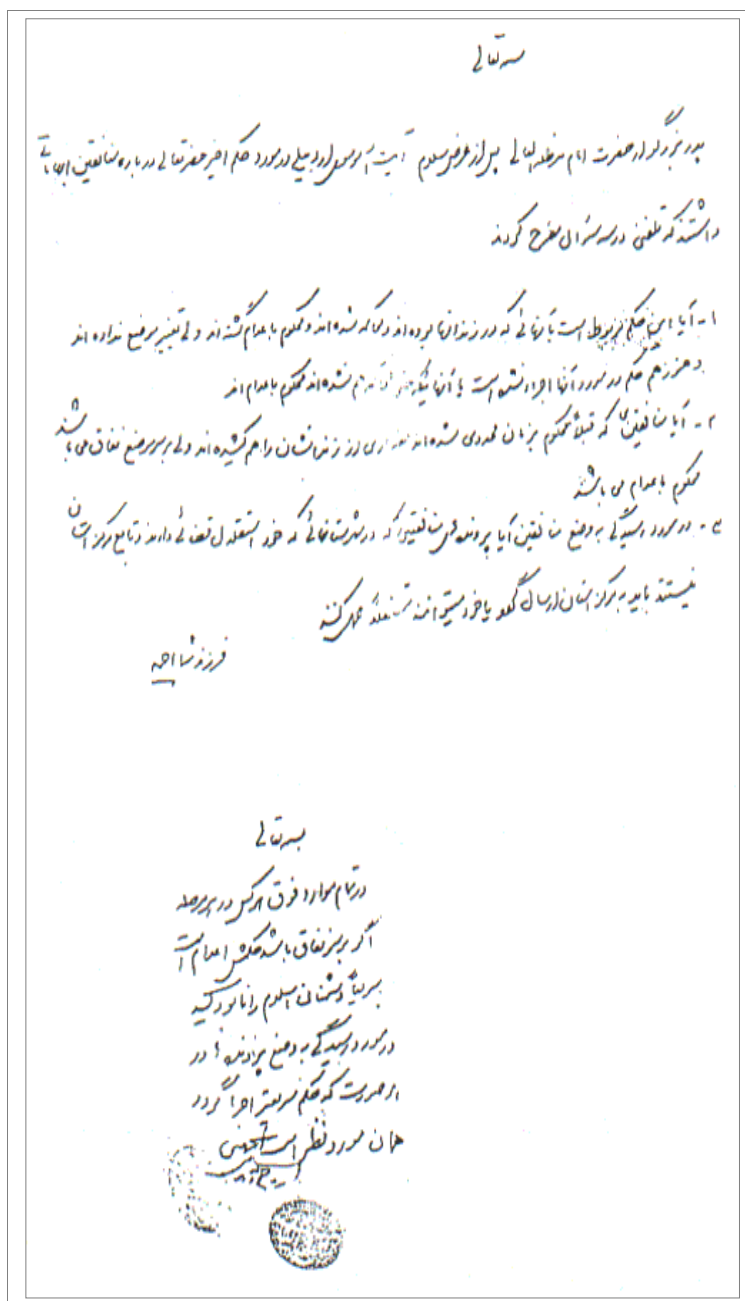 بسمه تعالی
پدر بزرگوار حضرت امام مدظله العالی پس از عرض سلام آیت الله موسوی اردبیلی در مورد حکم اخیر حضرتعالی درباره منافقین ابهاماتی
داشته‌اند که تلفنی در سه سئوال مطرح کردند
۱- آیا این حکم مربوط است به آنهائی که در زندانها بوده‌اند و محاکمه شده‌اند و محکوم باعدام گشته‌اند ولی تغییر موضع نداده‌اند
و هنوز هم حکم در مورد آنها اجراء نشده است یا آنهائیکه حتی محاکمه هم نشده‌اند محکوم باعدام‌اند
۲- آیا منافقینی که قبلاً محکوم بزندان محدودی شده‌اند مقداری از زندانشان را هم کشیده‌اند ولی بر سر موضع نفاق می‌باشند
محکوم باعدام می‌باشند
۳- در مورد رسیدگی به وضع منافقین آیا پرونده‌های منافقینی که در شهرستانهائی که خود استقلال قضائی دارند و تابع مرکز استان
نیستند باید به مرکز استان ارسال گردد یا خود میتوانند مستقلاً عمل کنند
فرزند شما احمد
بسمه تعالی
در تمام موارد فوق هر کس در هر مرحله
اگر بر سر نفاق باشد حکمش اعدام است
سریعاً دشمنان اسلام را نابود کنید
در مورد رسیدگی به وضع پرونده‌ها در
هر صورت که حکم سریعتر اجرا گردد
همان مورد نظر است
روح الله الموسوی الخمینی